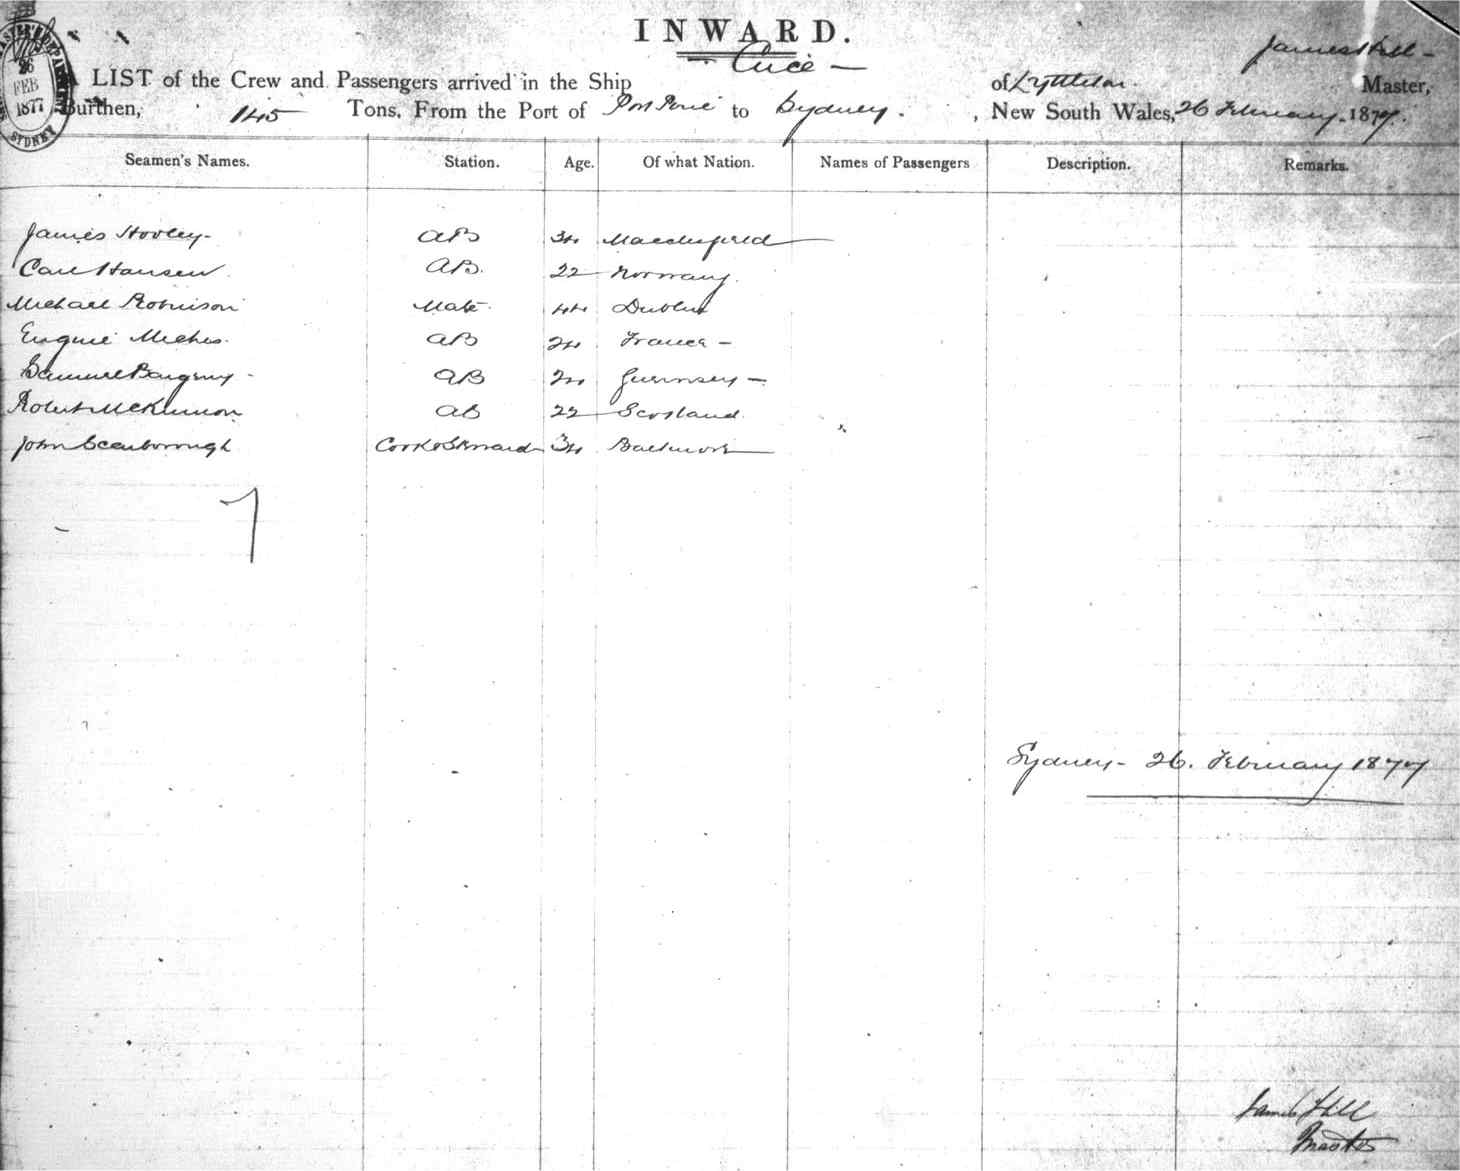 INWARD.
26
FEB
1877
SYDNEY
James Hill -
A LIST of the Crew and Passengers arrived in the Ship Alice - of Lyttleton. Master,
Burthen, 145 Tons, From the Port of Port Pirie to Sydney. , New South Wales, 26 February 1877.
Seamen's Names. Station. Age. Of what Nation. Names of Passengers Description. Remarks.
James Hooley - AB 34 Macclesfield
Carl Hansen AB. 22 Norway.
Michael Robinson Mate 44 Dublin
AB 24 France -
Samuel AB 24 Guernsey -
Robert McKinnon AB 22 Scotland.
John Scarborough Cook & Steward 34 Baltimore
7
Sydney - 26. February 1877
James Hill
Master